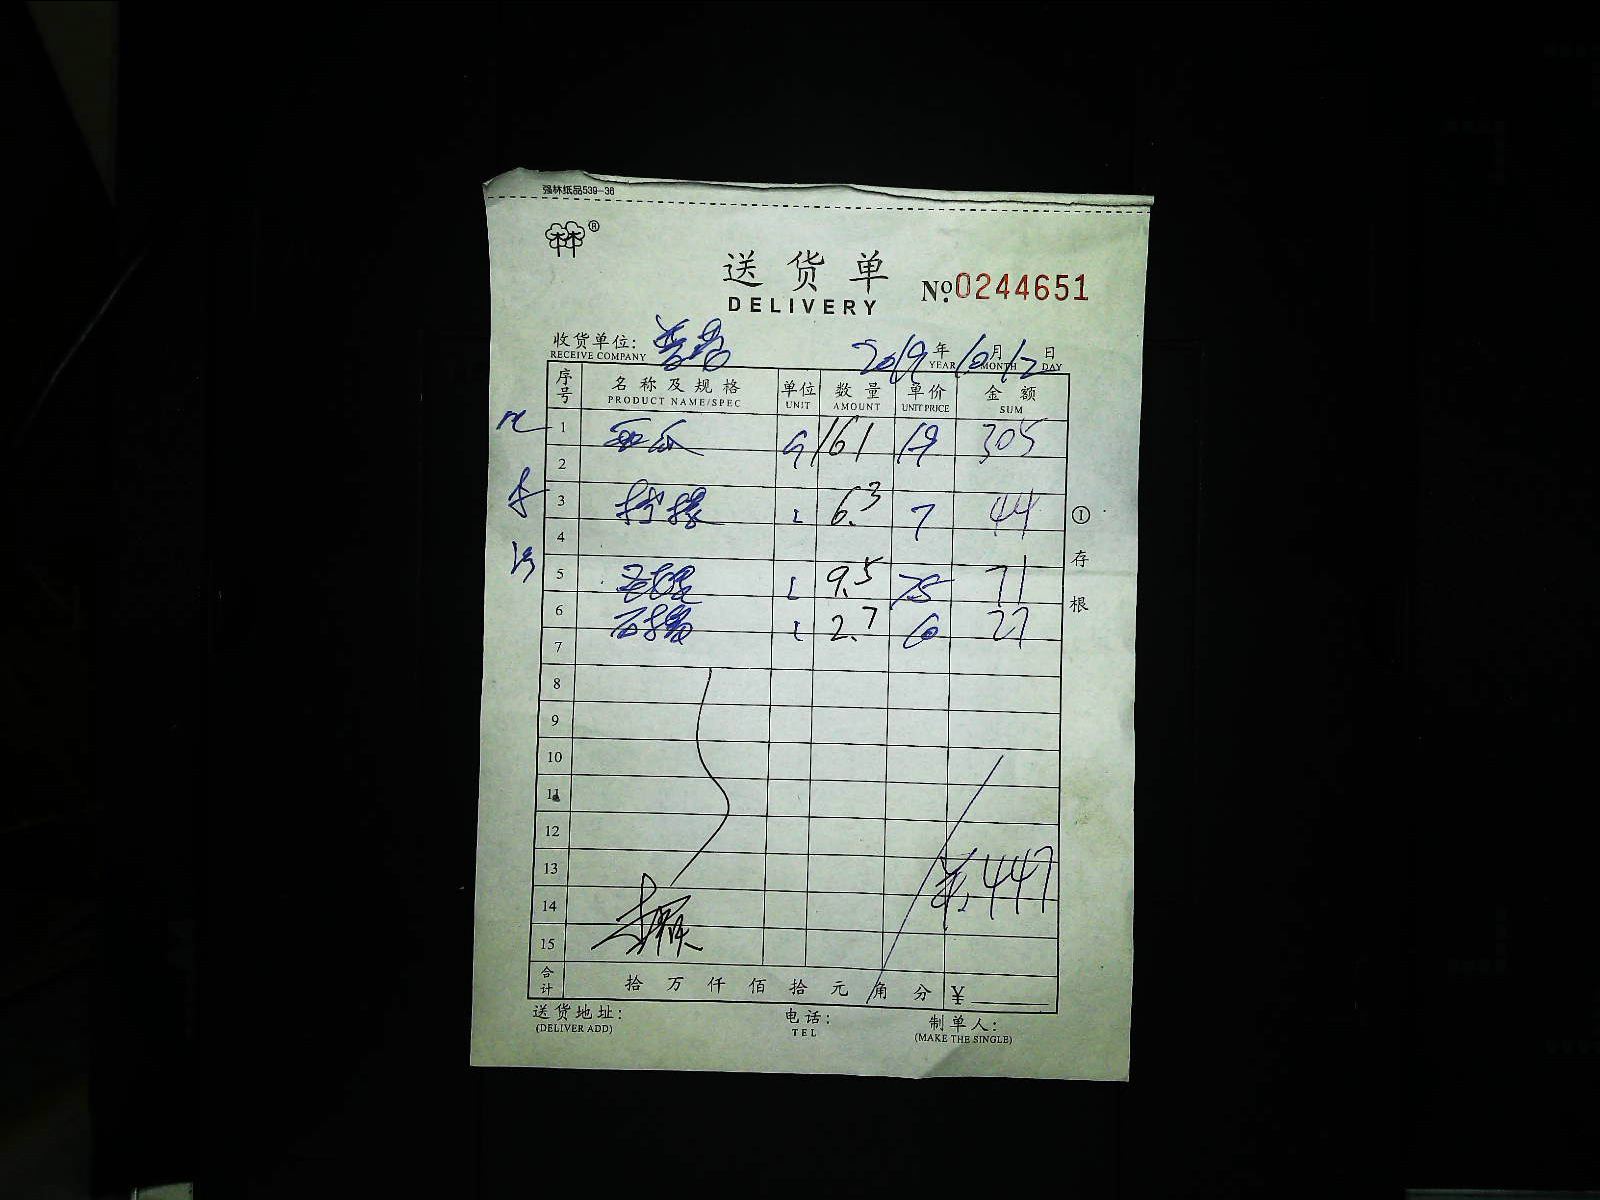 强林纸品539-36
林林®
送货单
DELIVERY
№ 0244651
收货单位:
RECEIVE COMPANY
2019年10月12日
YEAR MONTH DAY
序号 名称及规格 单位 数量 单价 金额
PRODUCT NAME/SPEC UNIT AMOUNT UNIT PRICE SUM
1 西瓜 161 19 305
2
3 柠檬 6.3 7 44
4
5 9.5 75 71
6 石榴 2.7 27
7
8
9
10
11
12
13 447
14
15
合计 拾万仟佰拾元角分 ¥
送货地址: 电话: 制单人:
(DELIVER ADD) TEL (MAKE THE SINGLE)
①存根